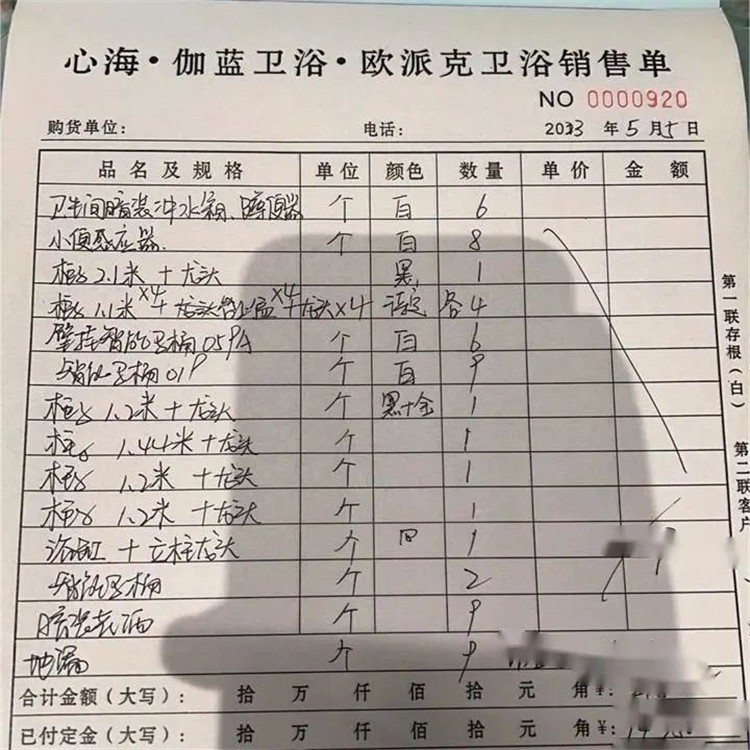 心海·伽蓝卫浴·欧派克卫浴销售单
NO 0000920
购货单位： 电话： 2023 年 5 月 5 日
品名及规格 单位 颜色 数量 单价 金额
卫生间暗装冲水箱、 个 白 6
小便感应器 个 白 8
柜 2.1米+龙头 黑 1
柜 1.1米×4+龙头 ×4 +龙头×4 各4
壁挂智能马桶05PA 个 白 6
智能马桶01P 个 白 9
柜 1.2米+龙头 个 黑+金 1
柜 1.44米+龙头 个 1
柜 1.2米+龙头 个 1
柜 1.2米+龙头 个 1
浴缸+立柱龙头 个 白 1
智能马桶 2
暗装花洒 个 9
地漏 个 9
合计金额（大写）： 拾 万 仟 佰 拾 元 角 ¥：
已付定金（大写）： 拾 万 仟 佰 拾 元 角 ¥：
第一联存根（白）
第二联客户